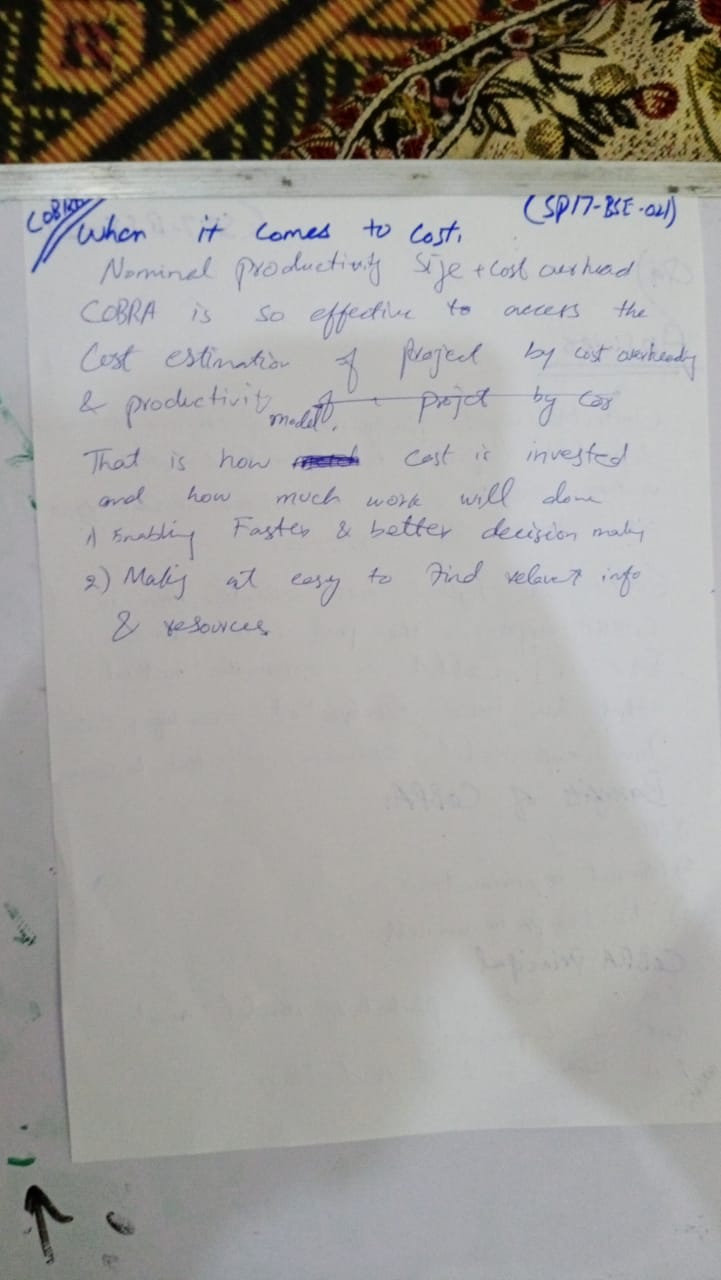 COBRA (SP17-BSE-021)
When it comes to cost,
Nominal productivity Size + Cost overhead
COBRA is so effective to access the
Cost estimation of Project by cost overheads
& productivity model. of project by cos
That is how cost is invested
and how much work will done
1) Enabling Faster & better decision making
2) Making at easy to Find relevant info
& resources